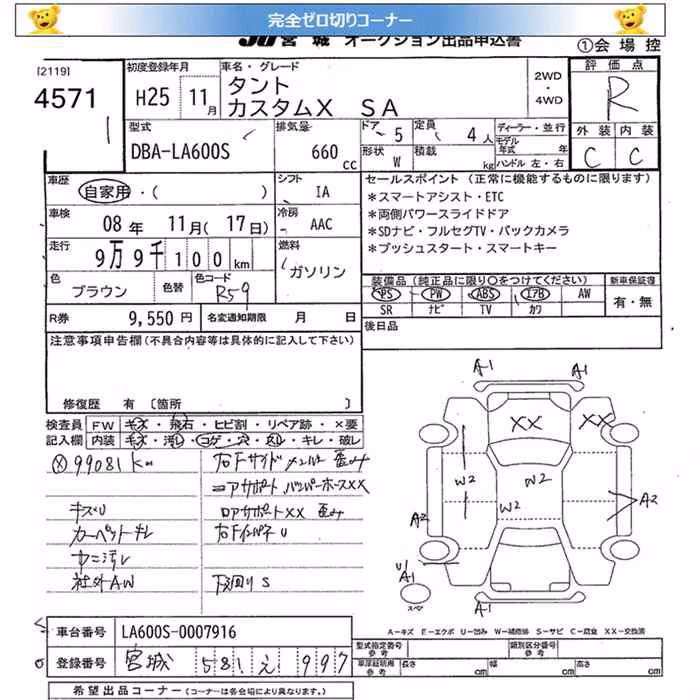 完全ゼロ切りコーナー
JU 宮城 オークション出品申込書
①会場控
[2119]
4571
1
初度登録年月
H25 11月
車名・グレード
タント
カスタムX SA
2WD
・
4WD
評価点
R
外装 内装
C C
型式
DBA-LA600S
排気量
660 cc
ドア 5
定員 4人
形状 W
積載 kg
ディーラー・並行
モデル年式 年
ハンドル 左・右
車歴
自家用・( )
シフト
IA
車検
08年 11月(17日)
冷房
AAC
走行
9万9千100km
燃料
ガソリン
色
ブラウン
色替
色コード
R59
R券 9,550円
名変通知期限 月 日
セールスポイント (正常に機能するものに限ります)
*スマートアシスト・ETC
*両側パワースライドドア
*SDナビ・フルセグTV・バックカメラ
*プッシュスタート・スマートキー
装備品(純正品に限り○をつけてください)
新車保証書
PS PW ABS エアB AW
SR ナビ TV カワ
有・無
後日品
注意事項申告欄(不具合内容等は具体的に記入して下さい)
修復歴 有 [箇所 ]
検査員記入欄
FW キズ・飛石・ヒビ割・リペア跡・×要
内装 キズ・汚レ・コゲ・穴・スレ・キレ・破レ
ⓧ99081km
キズU
カーペットキレ
ヤニ汚レ
社外AW
右Fサイドメンバー歪み
コアサポート、バンパーホースXX
ロアサポートXX 歪み
右FインパネU
下回りS
A1 A1
XX XX
W2 W2 W2
A2 A2
U/A1
A1
スペア
A-キズ E-エクボ U-凹み W-補修跡 S-サビ C-腐食 XX-交換済
車台番号 LA600S-0007916
登録番号 宮城 581 え 997
型式指定番号 参考
類別区分番号 参考
車庫証明用 参考 長さ cm 幅 cm 高さ cm
希望出品コーナー(コーナーは各会場により異なります。)